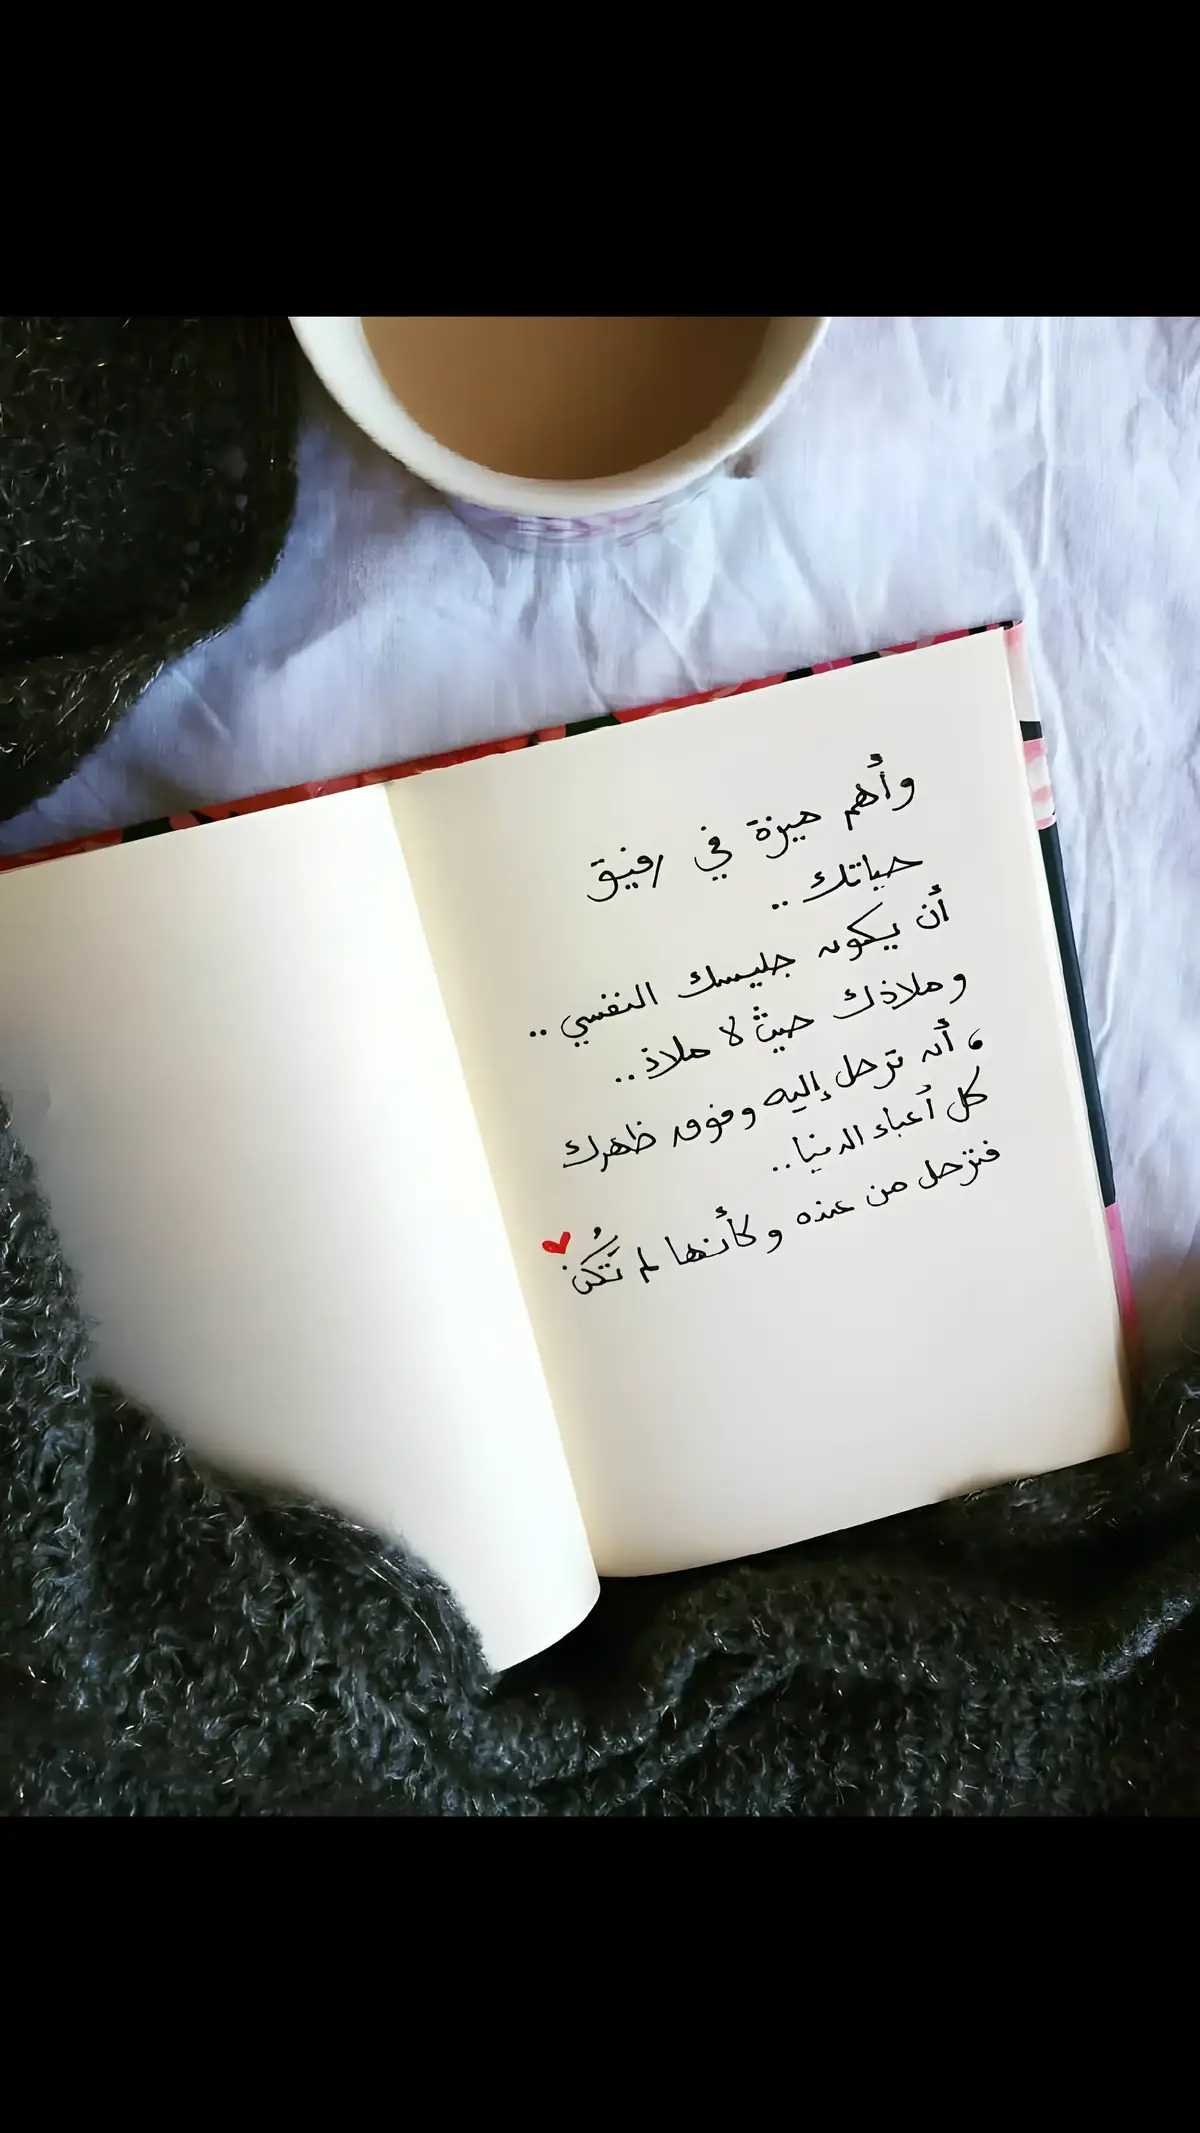 وأهم ميزة في رفيق
حياتك ..
أن يكون جليسك النفسي ..
وملاذك حيث لا ملاذ ..
، أن ترحل إليه وفوق ظهرك
كل أعباء الدنيا ..
فترحل من عنده وكأنها لم تَكُن